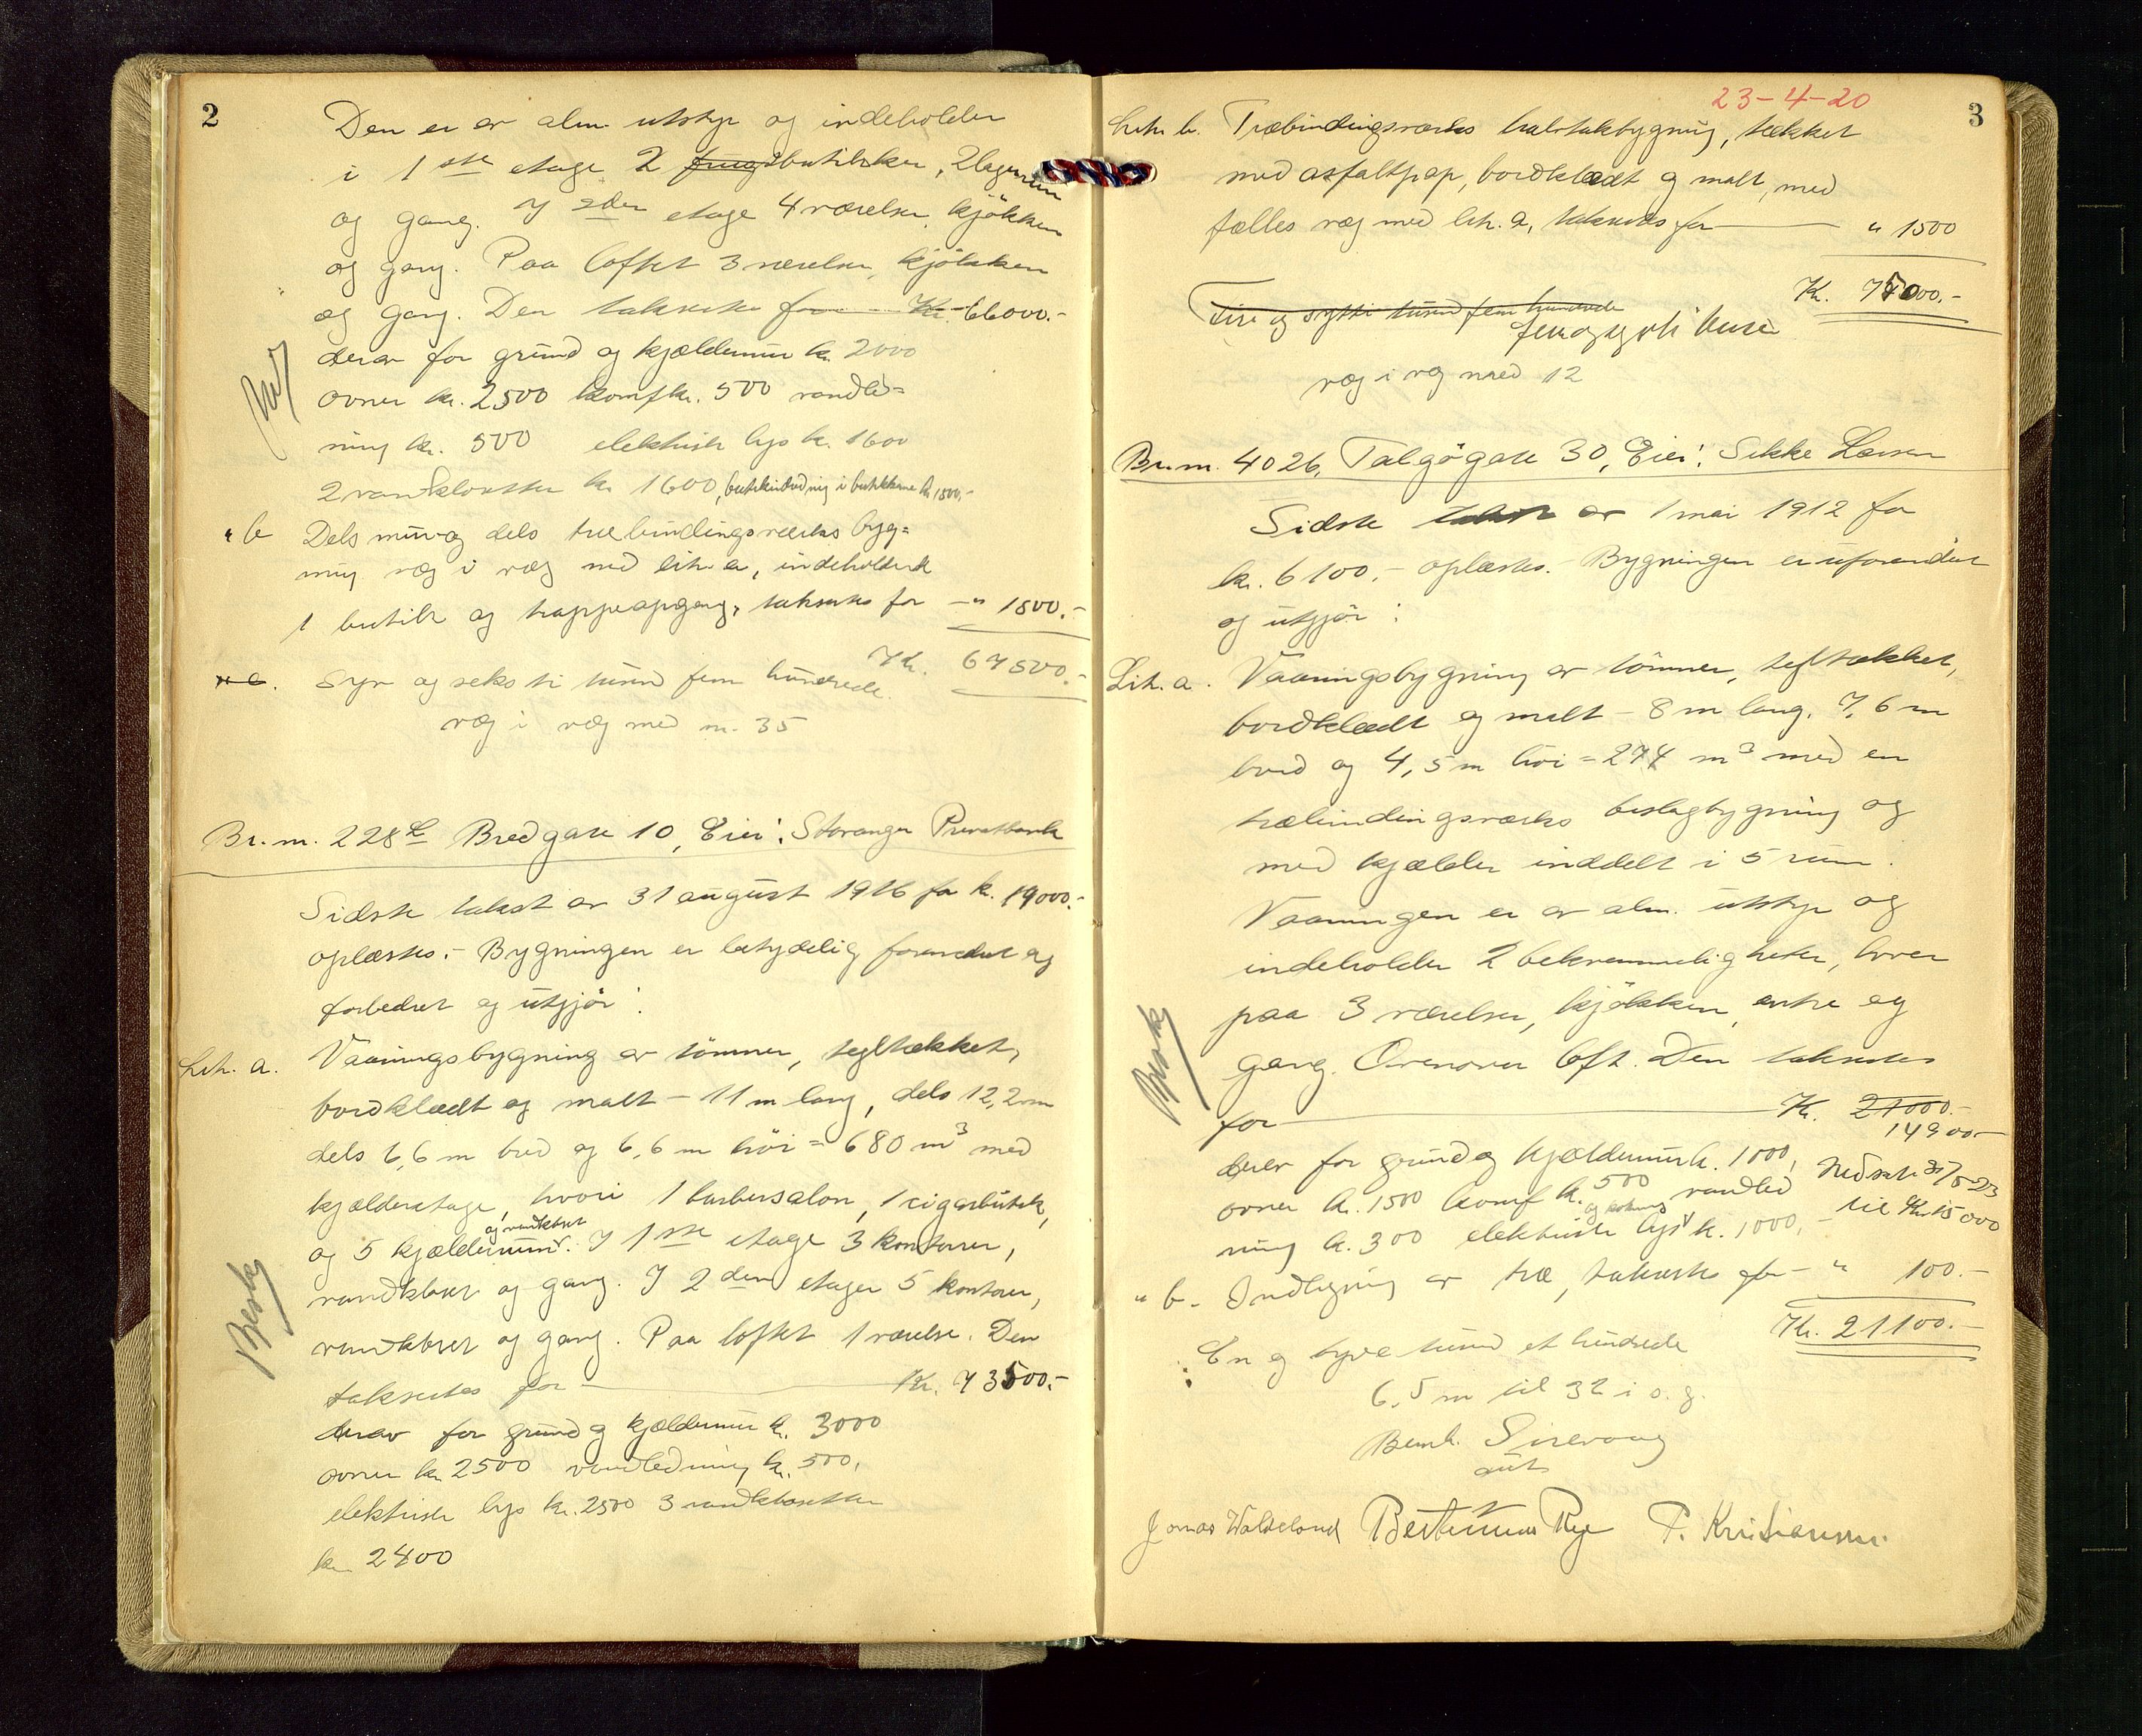 2
Den er av alm. utstyr og indeholder
i 1ste etage 2 butikker, 2 lagerrum
og gang. I 2den etage 4 værelser, kjökken
og gang. Paa loftet 3 værelser, kjökken
og gang. Den takseres for Kr. 66000.-
derav for grund og kjældermur kr. 2000
ovner kr. 2500 komf kr. 500 vandled=
ning kr. 500 elektrisk lys kr. 1600
2 vandklosetter kr 1600, butikindredning i butikkene kr 1500.-
" b Dels mur og dels træbindingsverks byg=
ning væg i væg med litr a, indeholdende
1 butik og trappeopgang, takseres for - " 1500.-
Kr. 67500.-
" c. Syv og seksti tusind fem hundrede.
væg i væg med nr. 35
Br. nr. 228 Bredgate 10, Eier: Stavanger Privatbank
Sidste takst av 31 august 1916 for kr. 19000.-
oplæstes.- Bygningen er betydelig forandret og
forbedret og utgjör:
Litr. a. Vaaningsbygning av tömmer, tegltækket,
bordklædt og malt - 11 m lang, dels 12,2 m
dels 6,6 m bred og 6,6 m höi = 680 m3 med
kjælderetage, hvori 1 barbersalon, 1 cigarbutik,
og vandkloset
og 5 kjælderrum. I 1ste etage 3 kontorer,
vandkloset og gang. I 2den etage 5 kontorer,
vandkloset og gang. Paa loftet 1 værelse. Den
takseres for Kr. 73500.-
derav for grund og kjældermur kr. 3000
ovner kr 2500 vandledning kr. 500,
elektrisk lys kr. 2500 3 vandklosetter
kr 2400
Besk
23-4-20
3
Litr. b. Træbindingsverks halvtakbygning, tækket
med asfaltpap, bordklædt og malt, med
fælles væg med litr. a, takseres for " 1500
Kr. 75000.-
Fire og sytti tusind fem hundrede
fem og sytti tusen
væg i væg med 12
Br. nr. 4026, Talgögate 30, Eier: Sikke Larsen
Sidste takst av 1 mai 1912 for
kr. 6100.- oplæstes.- Bygningen er uforandret
og utgjör:
Litr. a. Vaaningsbygning av tömmer, tegltækket,
bordklædt og malt - 8 m lang, 7,6 m
bred og 4,5 m höi = 274 m3 med en
træbindingsverks beslagbygning og
med kjælder inddelt i 5 rum.
Vaaningen er av alm. utstyr og
indeholder 2 bekvemmeligheter, hver
paa 3 værelser, kjökken, entre og
gang. Ovenover loft. Den takseres
for Kr. 21000.-
14900.-
derav for grund og kjældermur kr. 1000, Nedsat 31/5-23
ovner kr. 1500 komf kr. 500 vandled til Kr. 15000
ning kr. 300 elektrisk lys kr. 1000,-
" b. Indlegning av træ, takseres for - " 100.-
Kr. 21100.-
En og tyve tusind et hundrede
6,5 m til 32 i o. g.
Bernh. Sirevaag
aut
Jonas Walseland Bertinius Rye P. Kristiansen.
Besk